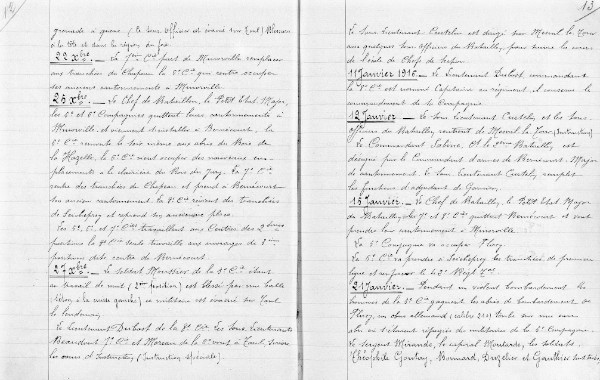 12
grenade à queue, (le sous officier est évacué sur Toul) Blessure
à la tête et dans la région du
22 Xbre. — La 7ème Cie part de Minorville remplacer
aux tranchées du Chapeau la 5e Cie qui rentre occuper
ses anciens cantonnements à Minorville.
25 Xbre. — Le Chef de Bataillon, le Petit Etat Major,
les 5e et 6e Compagnies quittent leurs cantonnements à
Minorville et viennent s'installer à Bernécourt, la
6e Cie remonte le soir même aux abris du Bois de
la Hazelle, la 5e Cie vient occuper ses nouveaux em-
placements à la clairière du Bois du Jury. La 7e Cie
rentre des tranchées du Chapeau et prend à Bernécourt
son ancien cantonnement, la 8e Cie revient des tranchées
de Seicheprey et reprend ses anciennes places.
Les 5e, 6e et 7e Cies travaillent aux Centres des 2èmes
positions la 8e Cie seule travaille aux ouvrages de 3ème
position du centre de Bernécourt.
27 Xbre. — Le soldat de la 5e Cie étant
au travail de nuit (2ème Position) est blessé par une balle
à la cuisse gauche) ce militaire est évacué sur Toul
le lendemain.
Le Lieutenant Dubost de la 8e Cie Les Sous Lieutenants
Beaudout 7e Cie et Moreau de la 6e vont à Toul, suivre
les cours d'Instruction, (Instruction spéciale).
13
Le Sous Lieutenant est dirigé sur Mesnil la Tour
avec quelques sous officiers du Bataillon, pour suivre les cours
de l'école de Chefs de Section.
11 Janvier 1916. — Le Lieutenant Dubost, commandant
la Cie est nommé Capitaine au régiment, il conserve le
commandement de la Compagnie.
12 Janvier — Le Sous Lieutenant et les sous
officiers du Bataillon rentrent de Mesnil la Tour (Instruction)
Le Commandant Sabirie, Ct le 2ème Bataillon, est
désigné par le Commandant d'armes de Bernécourt, Major
de cantonnement. Le Sous Lieutenant remplit
les fonctions d'adjudant de Garnison.
15 Janvier. — Le Chef de Bataillon, le Petit Etat Major
du Bataillon, les 7e et 8e Cie quittent Bernécourt et vont
prendre leur cantonnement à Minorville
La 5e Compagnie va occuper Flirey.
La 6e Cie va prendre à Seicheprey les tranchées de première
ligne
21 Janvier. — Pendant un violent bombardement les
hommes de la 5e Cie gagnent les abris de bombardement de
Flirey, un obus allemand (calibre 210) tombe sur un des
abris où étaient réfugiés des militaires de la 5e Compagnie.
Le Sergent Mirande, le caporal les soldats
Théophile Bonnard, et Gauthier